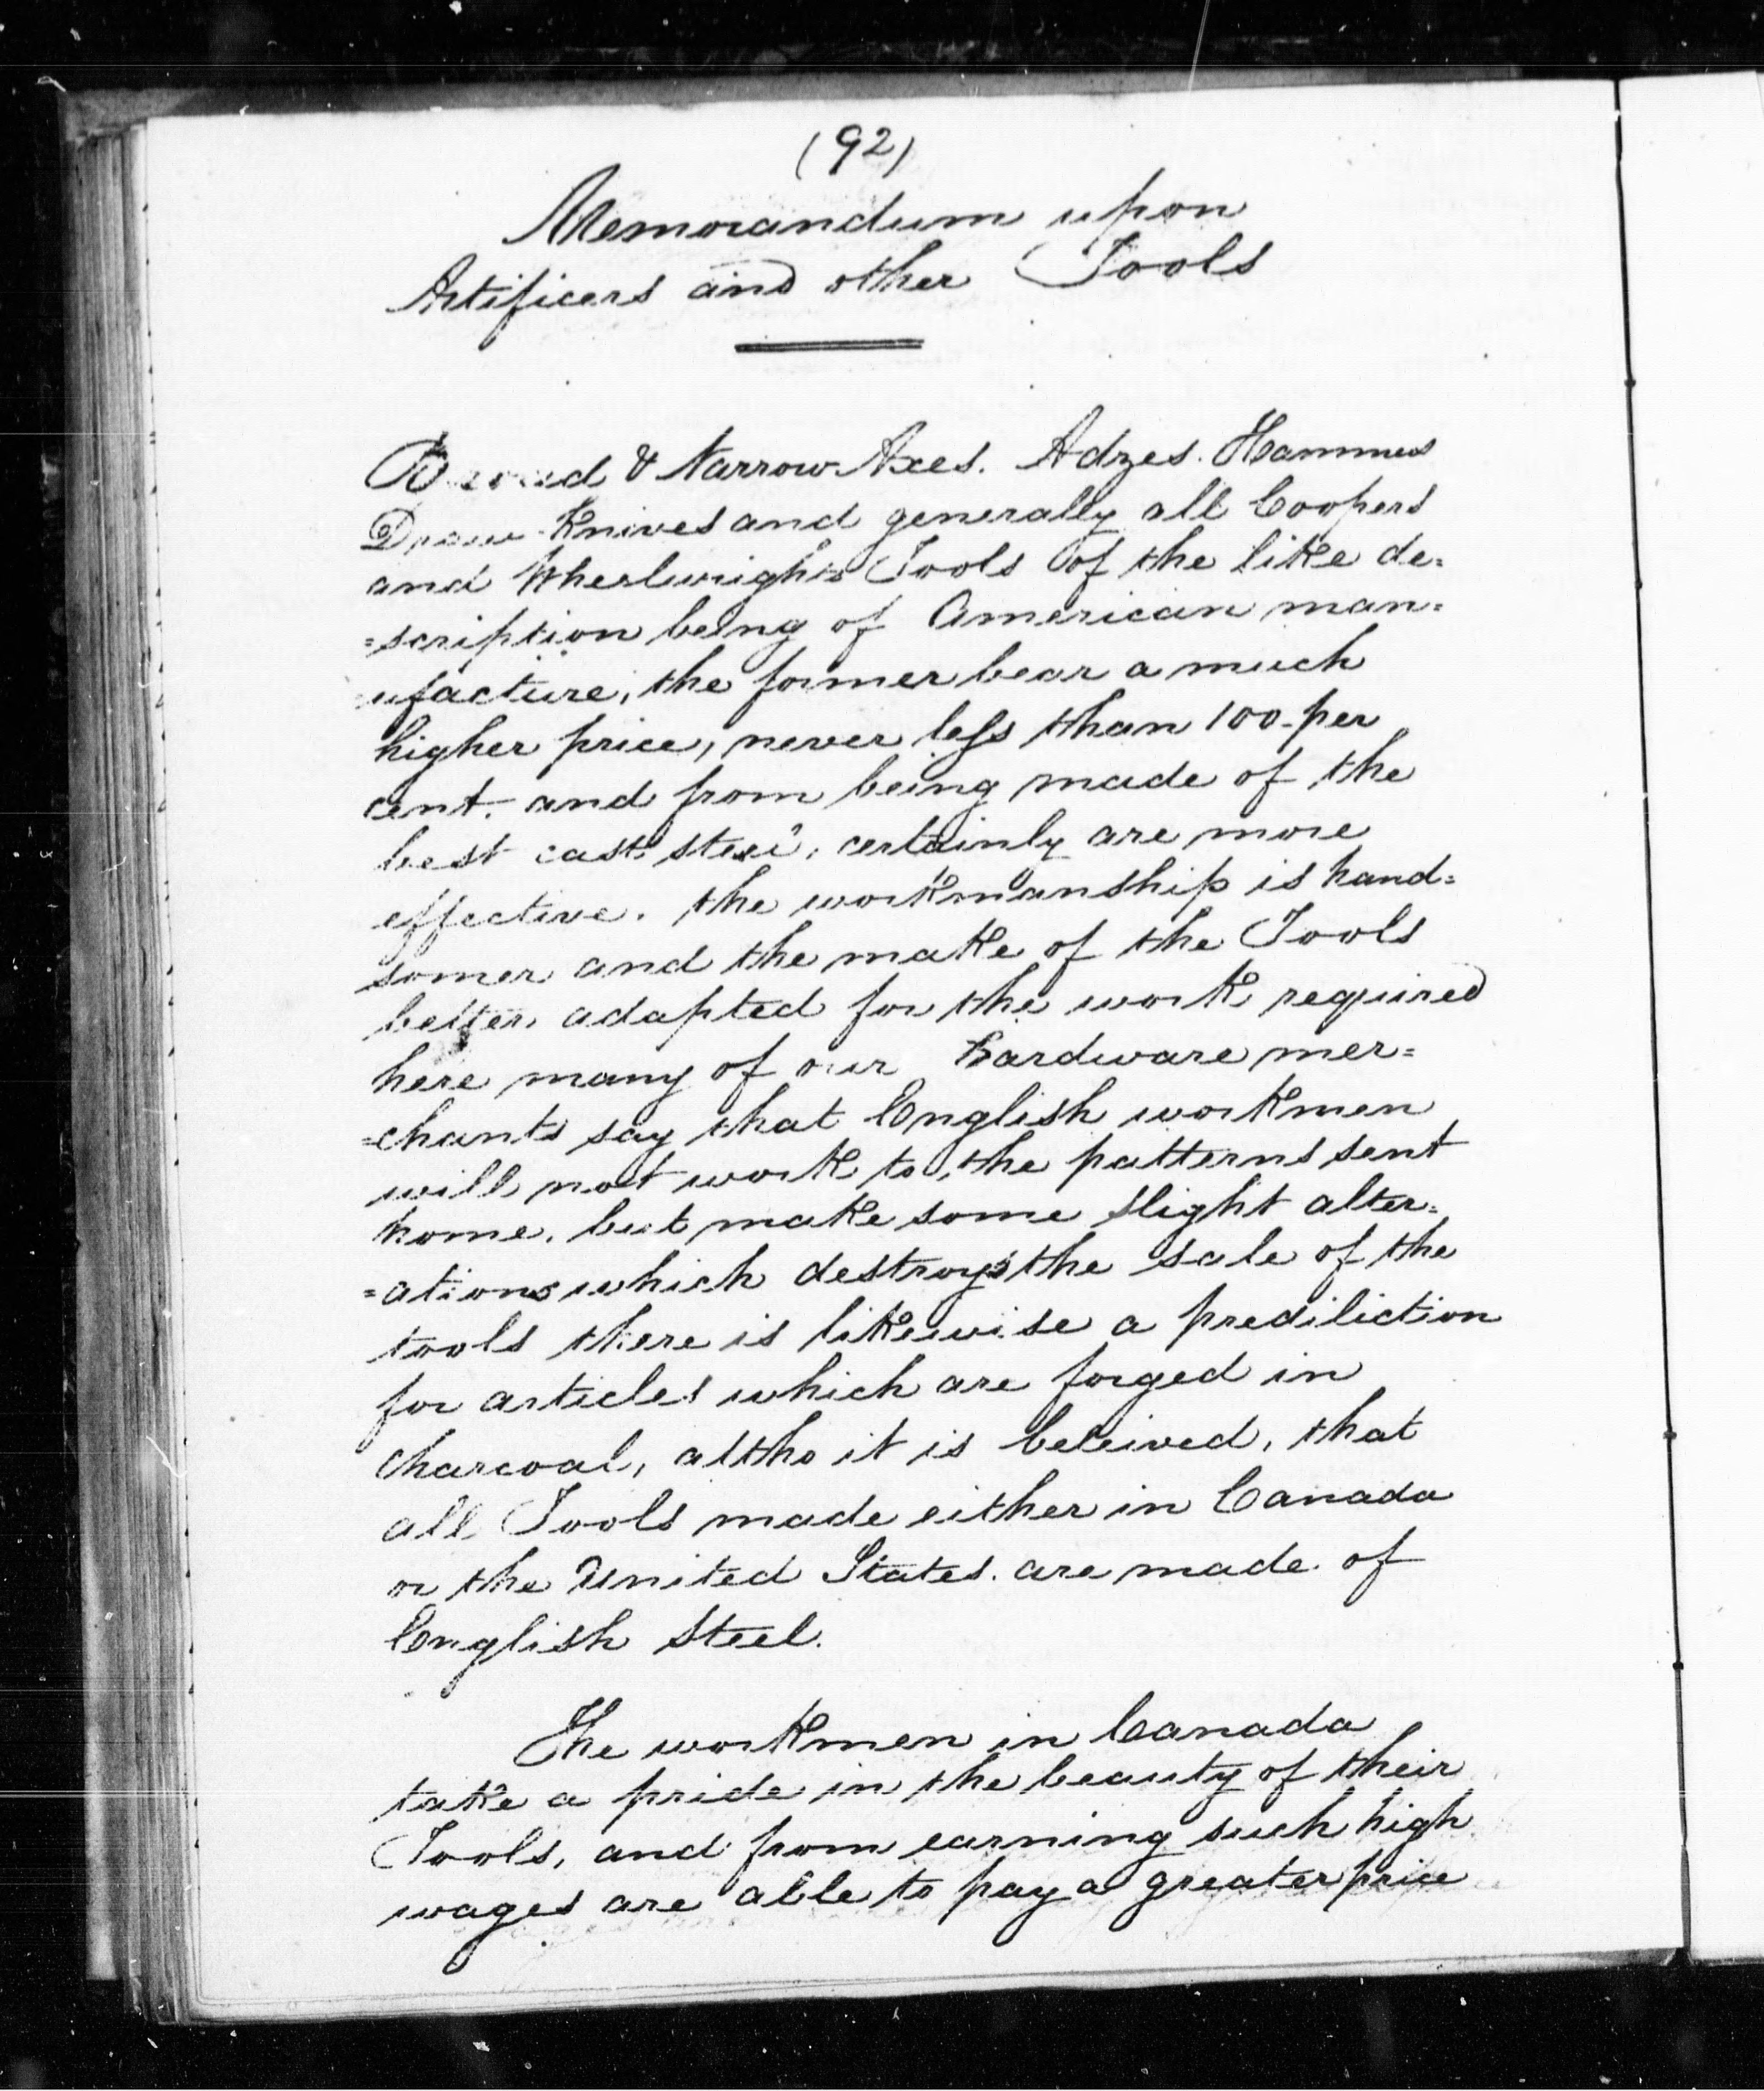 (92)
Memorandum upon
Artificers and other Tools
& Narrow Axes. Adzes. Hammers
Draw Knives and generally all Coopers
and Wheelwrights Tools of the like de=
=scription being of American man=
ufacture, the former bear a much
higher price, never less than 100 per
cent. and from being made of the
best cast steel, certainly are more
effective. the workmanship is hand=
somer and the make of the Tools
better adapted for the work required
here many of our hardware mer=
=chants say that English workmen
will not work to, the patterns sent
home. but make some slight alter=
=ations which destroys the sale of the
tools there is likewise a prediliction
for articles which are forged in
charcoal, altho it is beleived, that
all Tools made either in Canada
or the United States. are made of
English Steel.
The workmen in Canada
take a pride in the beauty of their
Tools, and from earning such high
wages are able to pay a greater price